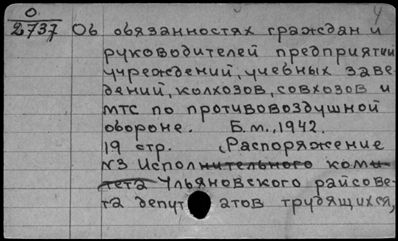 О
2737 Об обязанностях граждан и
руководителей предприятий
учреждений, учебных заве-
дений, колхозов, совхозов и
мтс по противовоздушной
обороне. Б.м., 1942.
19 стр. (Распоряжение
№3 Исполнительного коми-
тета Ульяновского райсове-
та депутатов трудящихся,